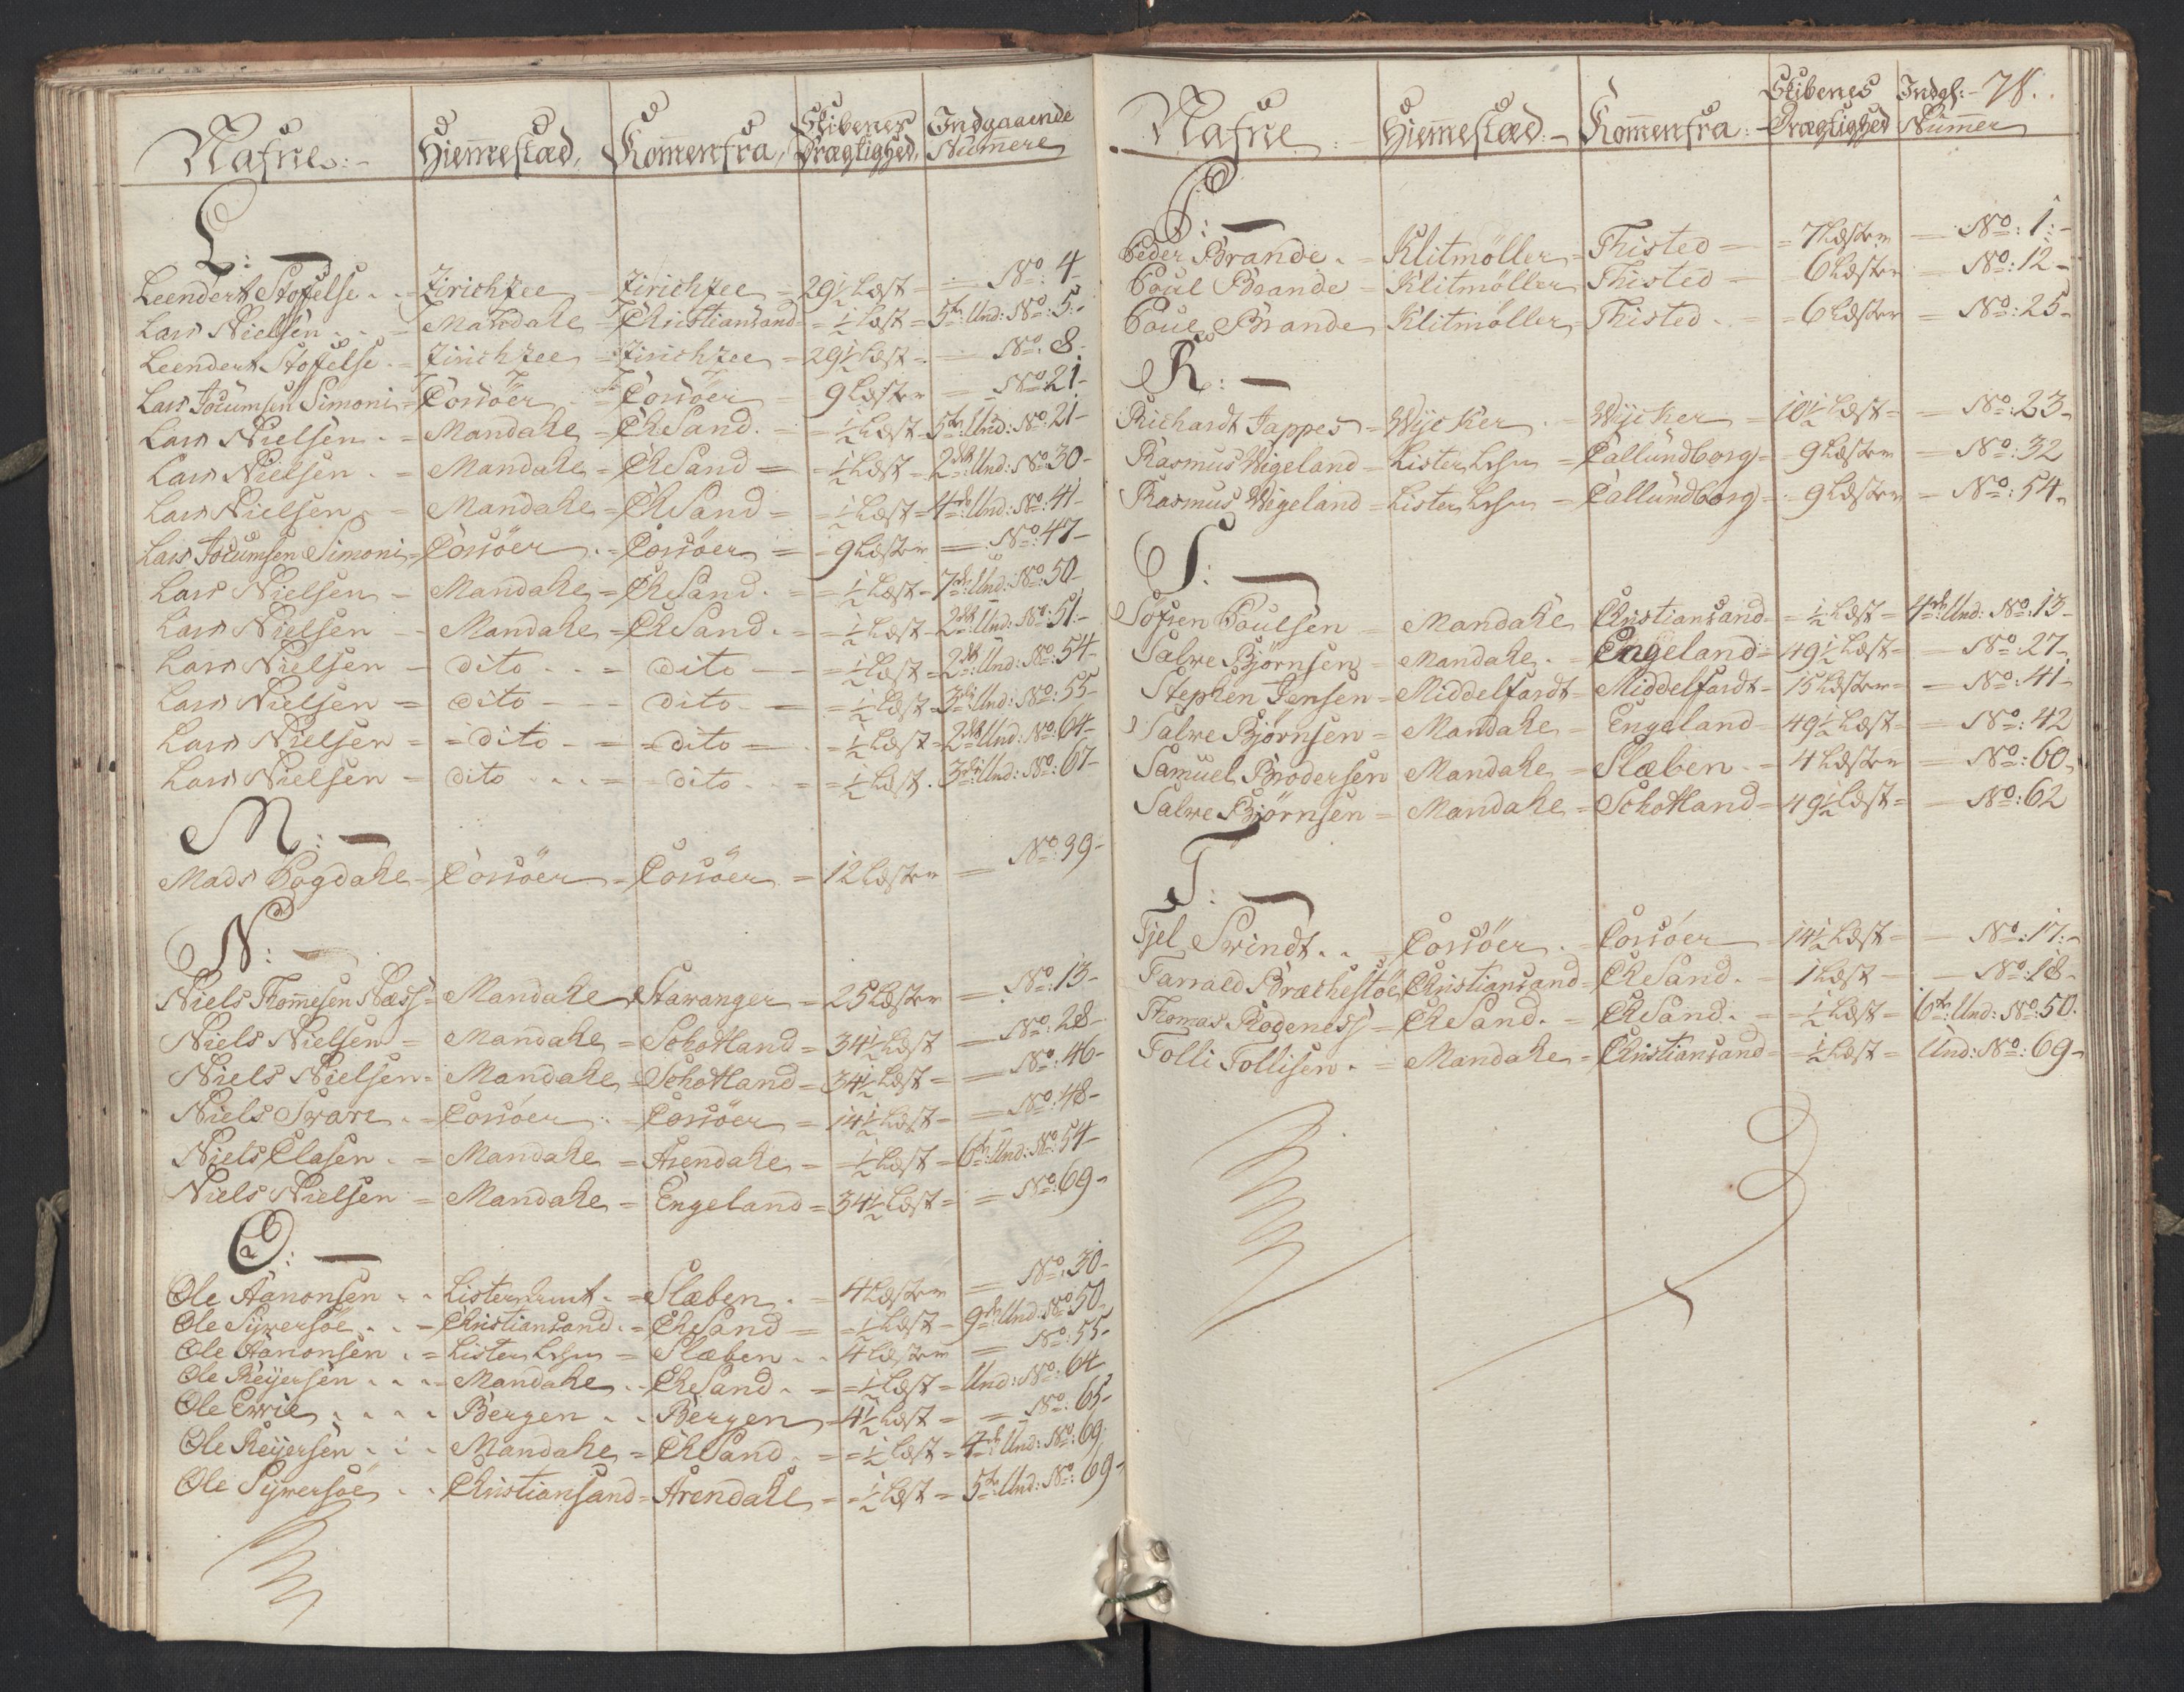 Nafne:- Hiemmestæd, Kommenfra, Skibenes Drægtighed, Indgaaende Numere
L:-
Leendert Stoffelse . . - Zirichzee - Zirichzee - 29½ Læst - - No: 4-
Lars Nielsen . . - Mandahl - Christiansand - - ½ Læst - 5te: Und: No: 5:-
Leendert Stoffelse - Zirichzee - Zirichzee - 29½ Læst - - No: 8-
Lars Jocumsen Simoni - Corsöer - Corsöer - 9 Læster - No: 21-
Lars Nielsen . - Mandahl - ChrSand. - - ½ Læst - 5te: Und: No: 21-
Lars Nielsen . - Mandahl - ChrSand - - ½ Læst - 2den: Und: No: 30-
Lars Nielsen . - Mandahl - ChrSand - - ½ Læst - 4de: Und: No: 41-
Lars Jocumsen Simoni - Corsöer . - Corsöer - - 9 Læster - No: 47-
Lars Nielsen - Mandahl - ChrSand. - - ½ Læst - 7de: Und: No: 50-
Lars Nielsen - Mandahl - ChrSand. - - ½ Læst - 2den: Und: No: 51-
Lars Nielsen - dito - . - dito - - ½ Læst - 2den: Und: No: 54-
Lars Nielsen - dito - - dito - - ½ Læst - 3die: Und: No: 55-
Lars Nielsen - - dito - - - dito - . - ½ Læst - 2den Und: No: 64-
Lars Nielsen - dito . . . - - dito . . - ½ Læst . 3die: Und: No: 67-
M:-
Mads Bogdahl - Corsöer - Corsöer - 12 Læster - No: 39-
N:-
Niels Thommesen Næss - Mandahl - Stavanger - 25 Læster - No: 13-
Niels Nielsen - Mandahl - Schottland - 34½ Læst - No: 28-
Niels Nielsen - Mandahl - Schottland - 34½ Læst - - No: 46-
Niels Svare . - Corsöer . - Corsöer - 14½ Læst - - No: 48-
Niels Clasen . - Mandahl - Arendahl - - ½ Læst - 6te: Und: No: 54-
Niels Nielsen - Mandahl - Engeland - 34½ Læst - - No: 69-
O:-
Ole Aanonsen . . - Slæben . - 4 Læster - No: 30-
Ole Syversöe . . - Christiansand . - ChrSand - - ½ Læst - 9de: Und: No: 50-
Ole Aanonsen . - Lister Lehn - Slæben . . 4 Læster - No: 55-
Ole Reyersen . . . - Mandahl . - ChrSand . - - ½ Læst - Und: No: 64
Ole Evvie . . . . Bergen . . Bergen - 4½ Læst - - No: 65-
Ole Reyersen . . . Mandahl - ChrSand . - - ½ Læst - 4de Und: No: 69-
Ole Syversöe . . Christiansand - Arendahl - - ½ Læst - 5te: Und: No: 69-
Nafne :- Hiemmestæd:- Kommenfra:- Skibenes Drægtighed Indg: Nummer - 78.
P:-
Peder Brande . - Klitmöller - Thisted - - 7 Læster - No: 1:-
Poul Brande - Klitmöller - Thisted - - 6 Læster - No: 12-
Poul Brande - Klitmöller - Thisted . - - 6 Læster - No: 25-
R:-
Richardt Jappes - Wycker . - Wycker - 10½ Læst - - No: 23-
Rasmus Wigeland - Lister Lehn - Callundborg - - 9 Læster - No: 32
Rasmus Wigeland - Lister Lehn - Callundborg - . 9 Læster - No: 54-
S:-
Söfren Poulsen - Mandahl Christiansand - - ½ Læst - 4de: Und: No: 13-
Salve Björnsen - Mandahl . - Engeland - 49½ Læst - - No: 27-
Stephen Jensen - Middelfardt - Middelfardt - 15 Læster - - No: 41-
Salve Björnsen - Mandahl - Engeland - 49½ Læst - - No: 42
Samuel Brodersen Mandahl - Slæben . - 4 Læster - No: 60-
Salve Björnsen - Mandahl - Schottland - 49½ Læst - - No: 62
T:-
Tjel Svindt . . - Corsöer . - Corsöer - 14½ Læst - - No: 17:-
Tarrald Bræchestöe Christiansand - ChrSand. - 1 Læst - - No: 18-
Thomas Rodeness - ChrSand. - ChrSand. - - ½ Læst - 6te: Und: No: 50.
Tolli Tollisen . - Mandahl - Christiansand - - ½ Læst - Und: No: 69-